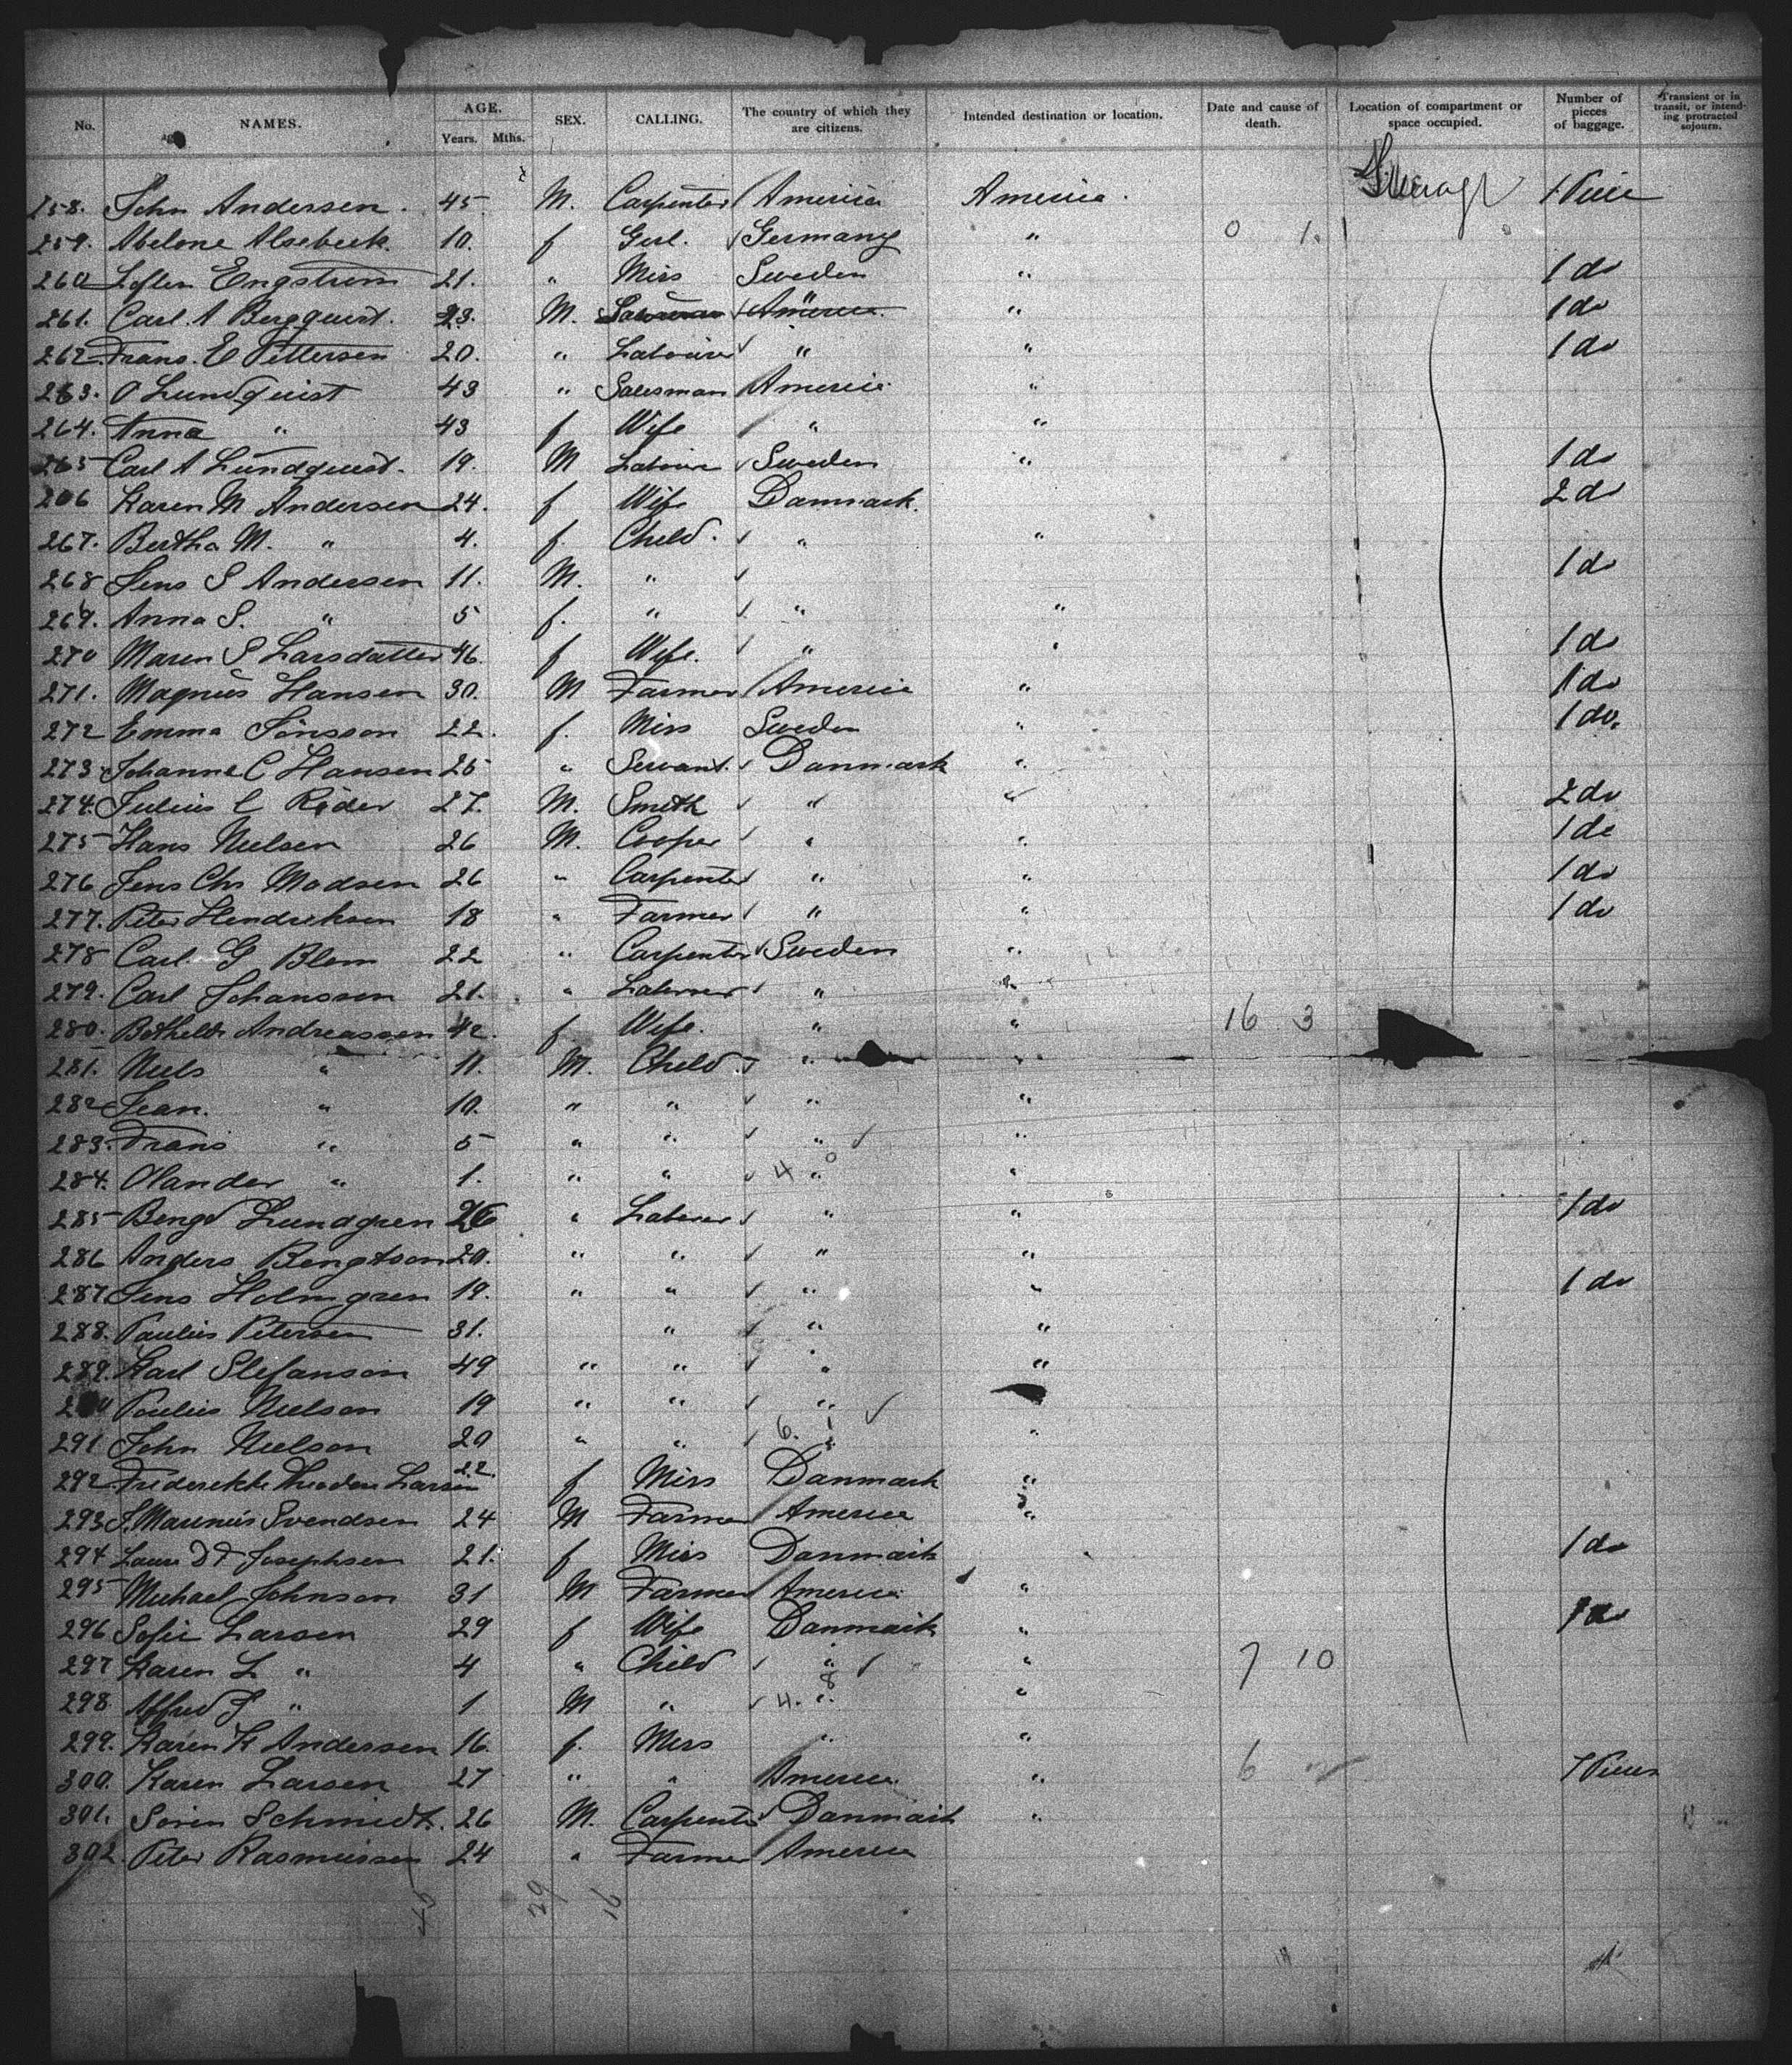 No. NAMES. AGE. Years. Mths. SEX. CALLING. The country of which they are citizens. Intended destination or location. Date and cause of death. Location of compartment or space occupied. Number of pieces of baggage. Transient or in transit, or intending protracted sojourn.
258. John Andersen. 45 M. Carpenter America America. Steerage 1 Piece
259. Abelone Alsebeck. 10. f Gerl. Germany " 0 1.
260 Engstrom 21. " Miss Sweden " 1 do
261. Carl. A Bergquist. 23. M. America " 1 do
262 Frans. E Pettersen 20. " Labourer " " 1 do
263. O Lundquist 43 " Salesman America "
264. Anna " 43 f Wife " "
265 Carl A Lundquist. 19. M Sweden " 1 do
266 Karen M Andersen 24. f Wife Danmark. 2 do
267. Bertha M. " 4. f. Child. " "
268 Jens S Andersen 11. M. " 1 do
269. Anna S. " 5 f. " " "
270 Maren S Larsdatter 46. f Wife. " " 1 do
271. Magnus Hansen 30. M Farmer America " 1 do
272 Emma Jönsson 22. f. Miss Sweden " 1 do.
273 Johanne C Hansen 25 " Servant. Danmark "
274. Julius C Röder 27. M. Smith " " 2 do
275 Hans Nielsen 26 M. Cooper " " 1 do
276 Jens Chr Madsen 26 " Carpenter " " 1 do
277. Peter Hendriksen 18 " Farmer " " 1 do
278 Carl G Blom 22 " Carpenter Sweden "
279. Carl Johansson 21. " Laborer " "
280. Andreassen 42. f Wife. " " 16 3
281. Niels " 11. M. Child. " "
282 Jean. " 10. " " " "
283. Frans " 5 " " " "
284. Olander " 1. " " 4 0 " "
285 Bengt Lundgren 26 " Laborer " " 1 do
286 Anders Bengtson 20. " " " "
287 Jens Holmgren 19. " " " " 1 do
288. Paulus Petersen 31. " " "
289. Karl Stefanson 49 " " " "
290 Paulus Nielson 19 " " "
291 John Nielson 20 " " 6. 1 " "
292. Frederikke Theodora Larsen 22. f Miss Danmark "
293 J. Marinus Svendsen 24 M Farmer America "
294 Laura D F Josephsen 21. f Miss Danmark 1 do
295 Michael Johnson 31 M Farmer America "
296 Sofie Larsen 29 f Wife Danmark " 1 do
297 Karen L " 4 " Child " " 7 10
298 Alfred P " 1 M " 4. 8 " "
299. Karen K Andersen 16. f. Miss " "
300. Karen Larsen 27 " " America " 6 1 Piece
301. Sören Schmidt. 26 M. Carpenter Danmark "
302. Peter Rasmussen 24 " Farmer America
29 16